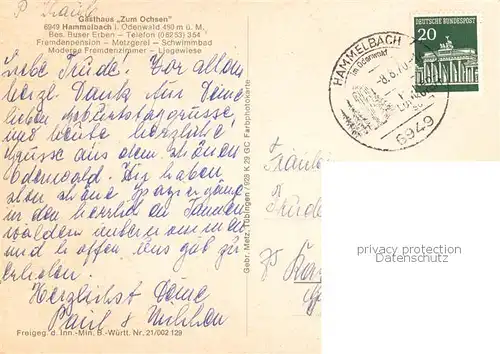 Gasthaus „Zum Ochsen"
6949 Hammelbach i. Odenwald 450 m ü. M.
Bes. Buser Erben – Telefon (06253) 354
Fremdenpension – Metzgerei – Schwimmbad
Moderne Fremdenzimmer – Liegewiese
Liebe Trude! Vor allem
herzl. Dank für Deine
lieben Geburtstagsgrüsse,
und heute herzliche
Grüsse aus dem schönen
Odenwald. Wir haben
schon schöne Spaziergänge
in den herrlichen Tannen
wäldern unternommen
und hoffen uns gut zu
erholen.
Herzlichst Deine
Freigeg. d. Inn.-Min. B.-Württ. Nr. 21/002 129
Gebr. Metz, Tübingen / 928 K 29 GC Farbphotokarte
HAMMELBACH
im Odenwald
-8.6.70
6949
DEUTSCHE BUNDESPOST
20
Fräulein
Trude
75
privacy protection